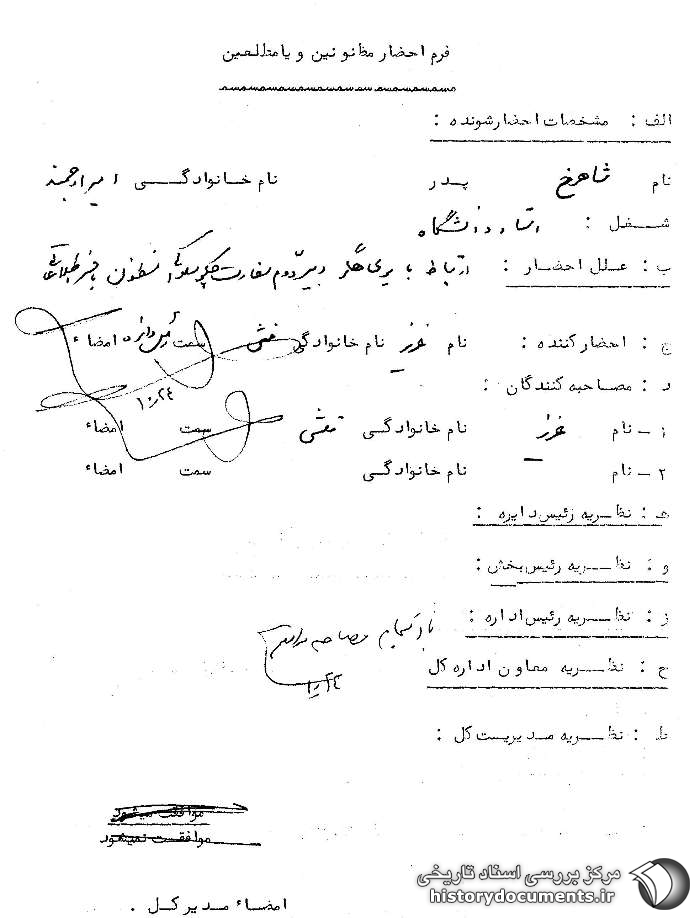 فرم احضار مظنونین و یا مطلعین
الف : مشخصات احضار شونده :
نام شاهرخ پدر نام خانوادگی امیرارجمند
شغل : استاد دانشگاه
ب : علل احضار : ارتباط با یری دبیر دوم سفارت چکوسلواکی
ج : احضار کننده : نام عزیز نام خانوادگی سمت رئیس دایره امضاء
۱۰/۲۴
د : مصاحبه کنندگان :
۱ - نام عزیز نام خانوادگی سمت امضاء
۲ - نام نام خانوادگی سمت امضاء
ه : نظریه رئیس دایره :
و : نظریه رئیس بخش :
ز : نظریه رئیس اداره : مصاحبه
ح : نظریه معاون اداره کل
ط : نظریه مدیریت کل :
موافقت میشود
موافقت نمیشود
امضاء مدیر کل .
مرکز بررسی اسناد تاریخی
historydocuments.ir